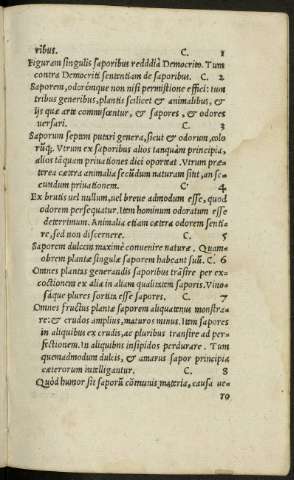 ribus. C. 1
Figuram singulis saporibus reddidisse Democritum. Tum
contra Democriti sententiam de saporibus. C. 2
Saporem, odorémque non nisi permistione effici: tum
tribus generibus, plantis scilicet & animalibus, &
ijs quæ arte commiscentur, & sapores, & odores
uersari. C. 3
Saporum septem putari genera, sicut & odorum, colo
rũq;. Vtrum ex saporibus alios tanquàm principia,
alios tãquam priuationes dici oporteat. Vtrum præ-
terea cætera animalia secũdum naturam sint, an se-
cundum priuationem. C. 4
Ex brutis uel nullum, uel breue admodum esse, quod
odorem persequatur. Item hominum odoratum esse
deterrimum. Animalia etiam cætera odorem senti-
re, sed non discernere. C. 5
Saporem dulcem maximè conuenire naturæ. Quam-
obrem plantæ singulæ saporem habeant suũ. C. 6
Omnes plantas generandis saporibus trãsire per ex-
coctionem ex alia in aliam qualitatem saporis. Vino-
sáque plures sortita esse sapores. C. 7
Omnes fructus plantæ saporem aliquatenus monstra-
re: & crudos amplius, maturos minus. Item sapores
in aliquibus ex crudis, ac pluribus transire ad per-
fectionem. In aliquibus insipidos perdurare. Tum
quemadmodum dulcis, & amarus sapor principia
cæterorum intelligantur. C. 8
Quòd humor sit saporũ cõmunis materia, causa ue-
ro